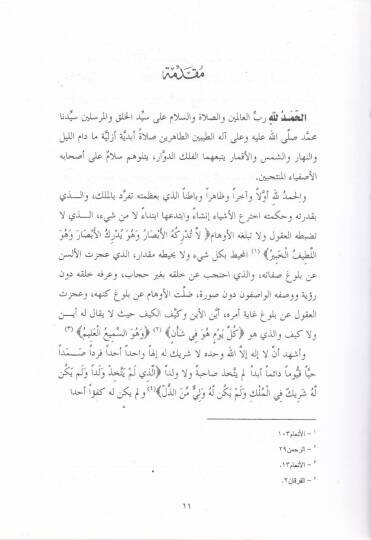 مُقَدِّمَة
الحَمْدُ للهِ ربِّ العالمين والصلاة والسلام على سيِّد الخلق والمرسلين سيِّدنا
محمّد صلّى الله عليه وعلى آله الطيبين الطاهرين صلاةً أبديَّة أزليَّة ما دام الليل
والنهار والشمس والأقمار يتبعهما الفلك الدوَّار، يتلوهم سلامٌ على أصحابه
الأصفياء المنتجبين.
والحمدُ للهِ أوَّلاً وآخراً وظاهراً وباطناً الذي بعظمته تفرَّد بالملك، والـــذي
بقدرته وحكمته اخترع الأشياء إنشاءً وابتدعها ابتداءً لا من شيء، الـــذي لا
تضبطه العقول ولا تبلغه الأوهام﴿ لاَّ تُدْرِكُهُ الأَبْصَارُ وَهُوَ يُدْرِكُ الأَبْصَارَ وَهُوَ
اللَّطِيفُ الْخَبِيرُ﴾ (١) المحيط بكل شيء ولا يحيطه مقدار، الذي عجزت الألسن
عن بلوغ صفاته، والذي احتجب عن خلقه بغير حجاب، وعرفه خلقه دون
رؤية ووصفه الواصفون دون صورة، ضلَّت الأوهام عن بلوغ كنهه، وعجزت
العقول عن بلوغ غاية أمره، أيَّن الأين وكيَّف الكيف حيث لا يقال له أيـــن
ولا كيف والذي هو ﴿كُلَّ يَوْمٍ هُوَ فِي شَأْنٍ﴾ (٢) ﴿وَهُوَ السَّمِيعُ الْعَلِيمُ﴾ (٣)
وأشهد أنْ لا إله إلاَّ الله وحده لا شريك له إلهاً واحداً أحداً فرداً صَـــمَـــداً
حيَّاً قيُّوماً دائماً أبداً لم يتَّخذ صاحبةً ولا ولداً ﴿الَّذِي لَمْ يَتَّخِذْ وَلَداً وَلَم يَكُن
لَّهُ شَرِيكٌ فِي الْمُلْكِ وَلَمْ يَكُن لَّهُ وَلِيٌّ مِّنَ الذُّلِّ﴾(٤) و لم يكن له كفؤاً أحدا
١ - الأنعام١٠٣
٢ - الرحمن٢٩
٣ - الأنعام١٣.
٤ - الفرقان٢.
١١